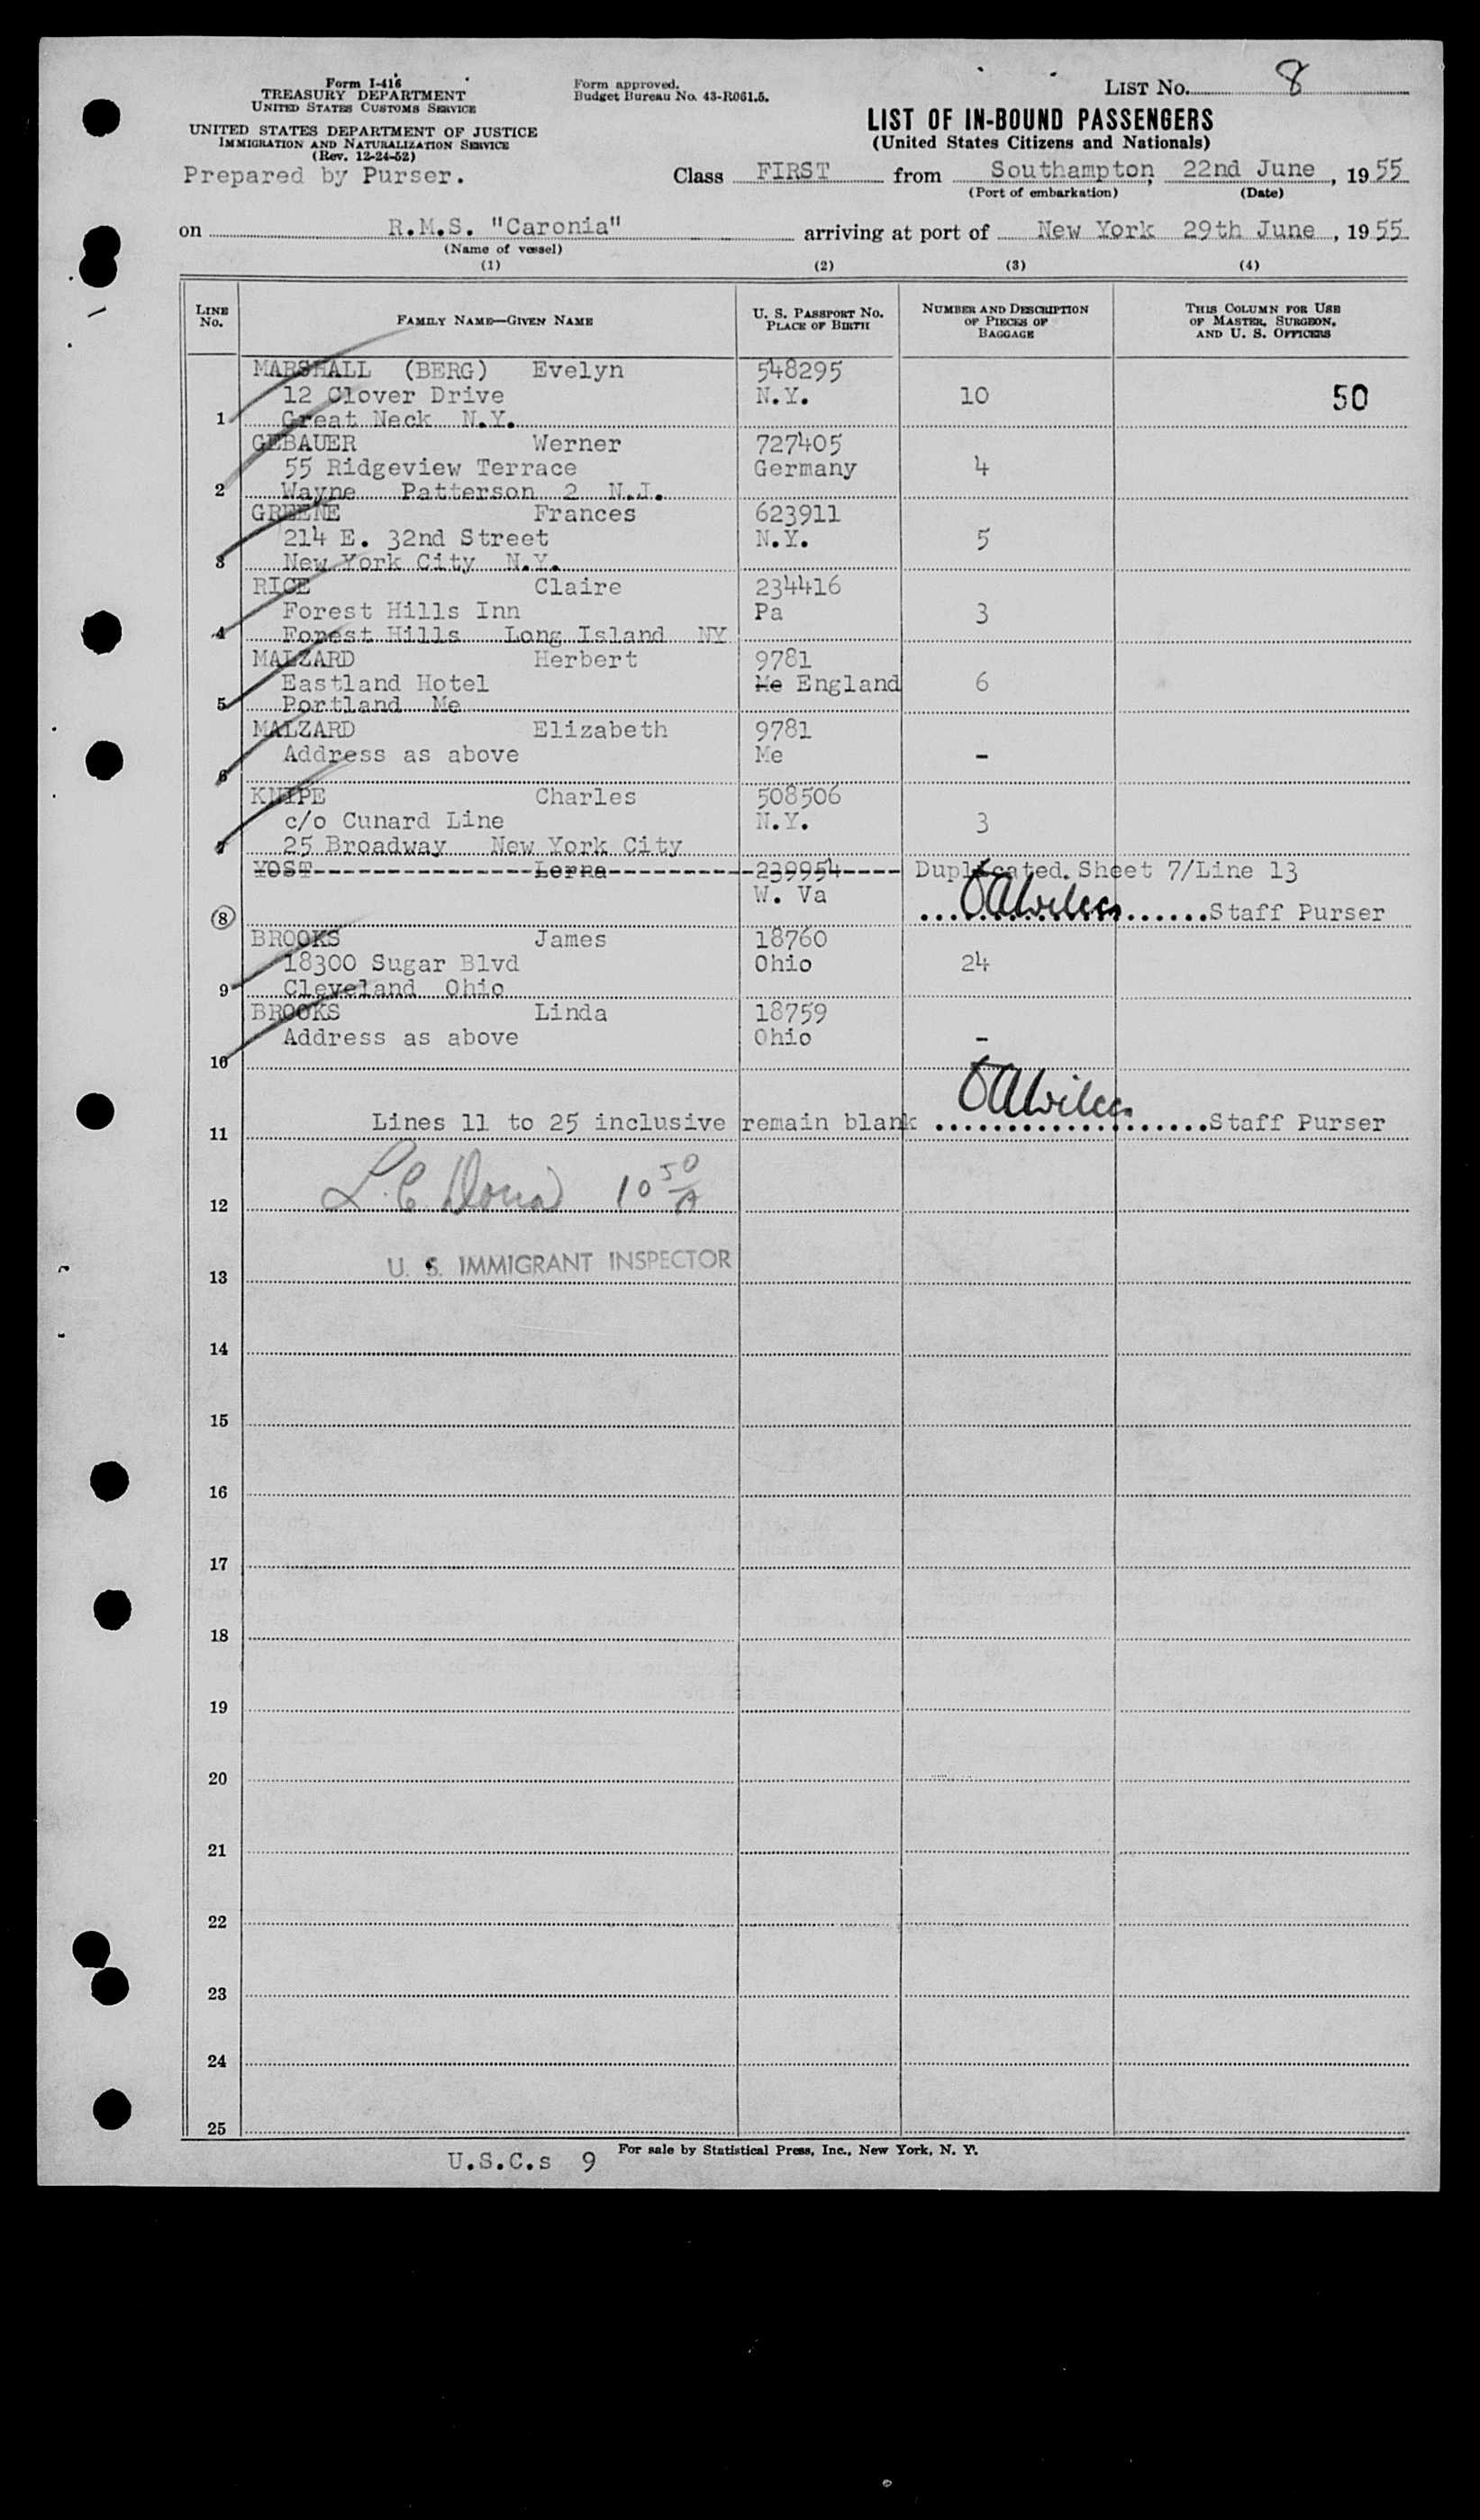 Form I-416
TREASURY DEPARTMENT
UNITED STATES CUSTOMS SERVICE
UNITED STATES DEPARTMENT OF JUSTICE
IMMIGRATION AND NATURALIZATION SERVICE
(Rev. 12-24-52)
Prepared by Purser.
Form approved.
Budget Bureau No. 43-R061.5.
LIST NO. 8
LIST OF IN-BOUND PASSENGERS
(United States Citizens and Nationals)
Class FIRST from Southampton, 22nd June, 1955
(Port of embarkation) (Date)
on R.M.S. "Caronia" arriving at port of New York 29th June, 1955
(Name of vessel)
(1) (2) (3) (4)
LINE NO. FAMILY NAME—GIVEN NAME U. S. PASSPORT NO. PLACE OF BIRTH NUMBER AND DESCRIPTION OF PIECES OF BAGGAGE THIS COLUMN FOR USE OF MASTER, SURGEON, AND U. S. OFFICERS
MARSHALL (BERG) Evelyn 548295
12 Clover Drive N.Y. 10 50
1 Great Neck N.Y.
GEBAUER Werner 727405
55 Ridgeview Terrace Germany 4
2 Wayne Patterson 2 N.J.
GREENE Frances 623911
214 E. 32nd Street N.Y. 5
3 New York City N.Y.
RICE Claire 234416
Forest Hills Inn Pa 3
4 Forest Hills Long Island NY
MALZARD Herbert 9781
Eastland Hotel Me England 6
5 Portland Me
MALZARD Elizabeth 9781
Address as above Me -
6
KNIPE Charles 508506
c/o Cunard Line N.Y. 3
7 25 Broadway New York City
YOST Lorna 239954 Duplicated. Sheet 7/Line 13
W. Va
8 Staff Purser
BROOKS James 18760
18300 Sugar Blvd Ohio 24
9 Cleveland Ohio
BROOKS Linda 18759
Address as above Ohio -
10
11 Lines 11 to 25 inclusive remain blank Staff Purser
12 10 50 A
13 U. S. IMMIGRANT INSPECTOR
14
15
16
17
18
19
20
21
22
23
24
25
For sale by Statistical Press, Inc., New York, N. Y.
U.S.C.s 9